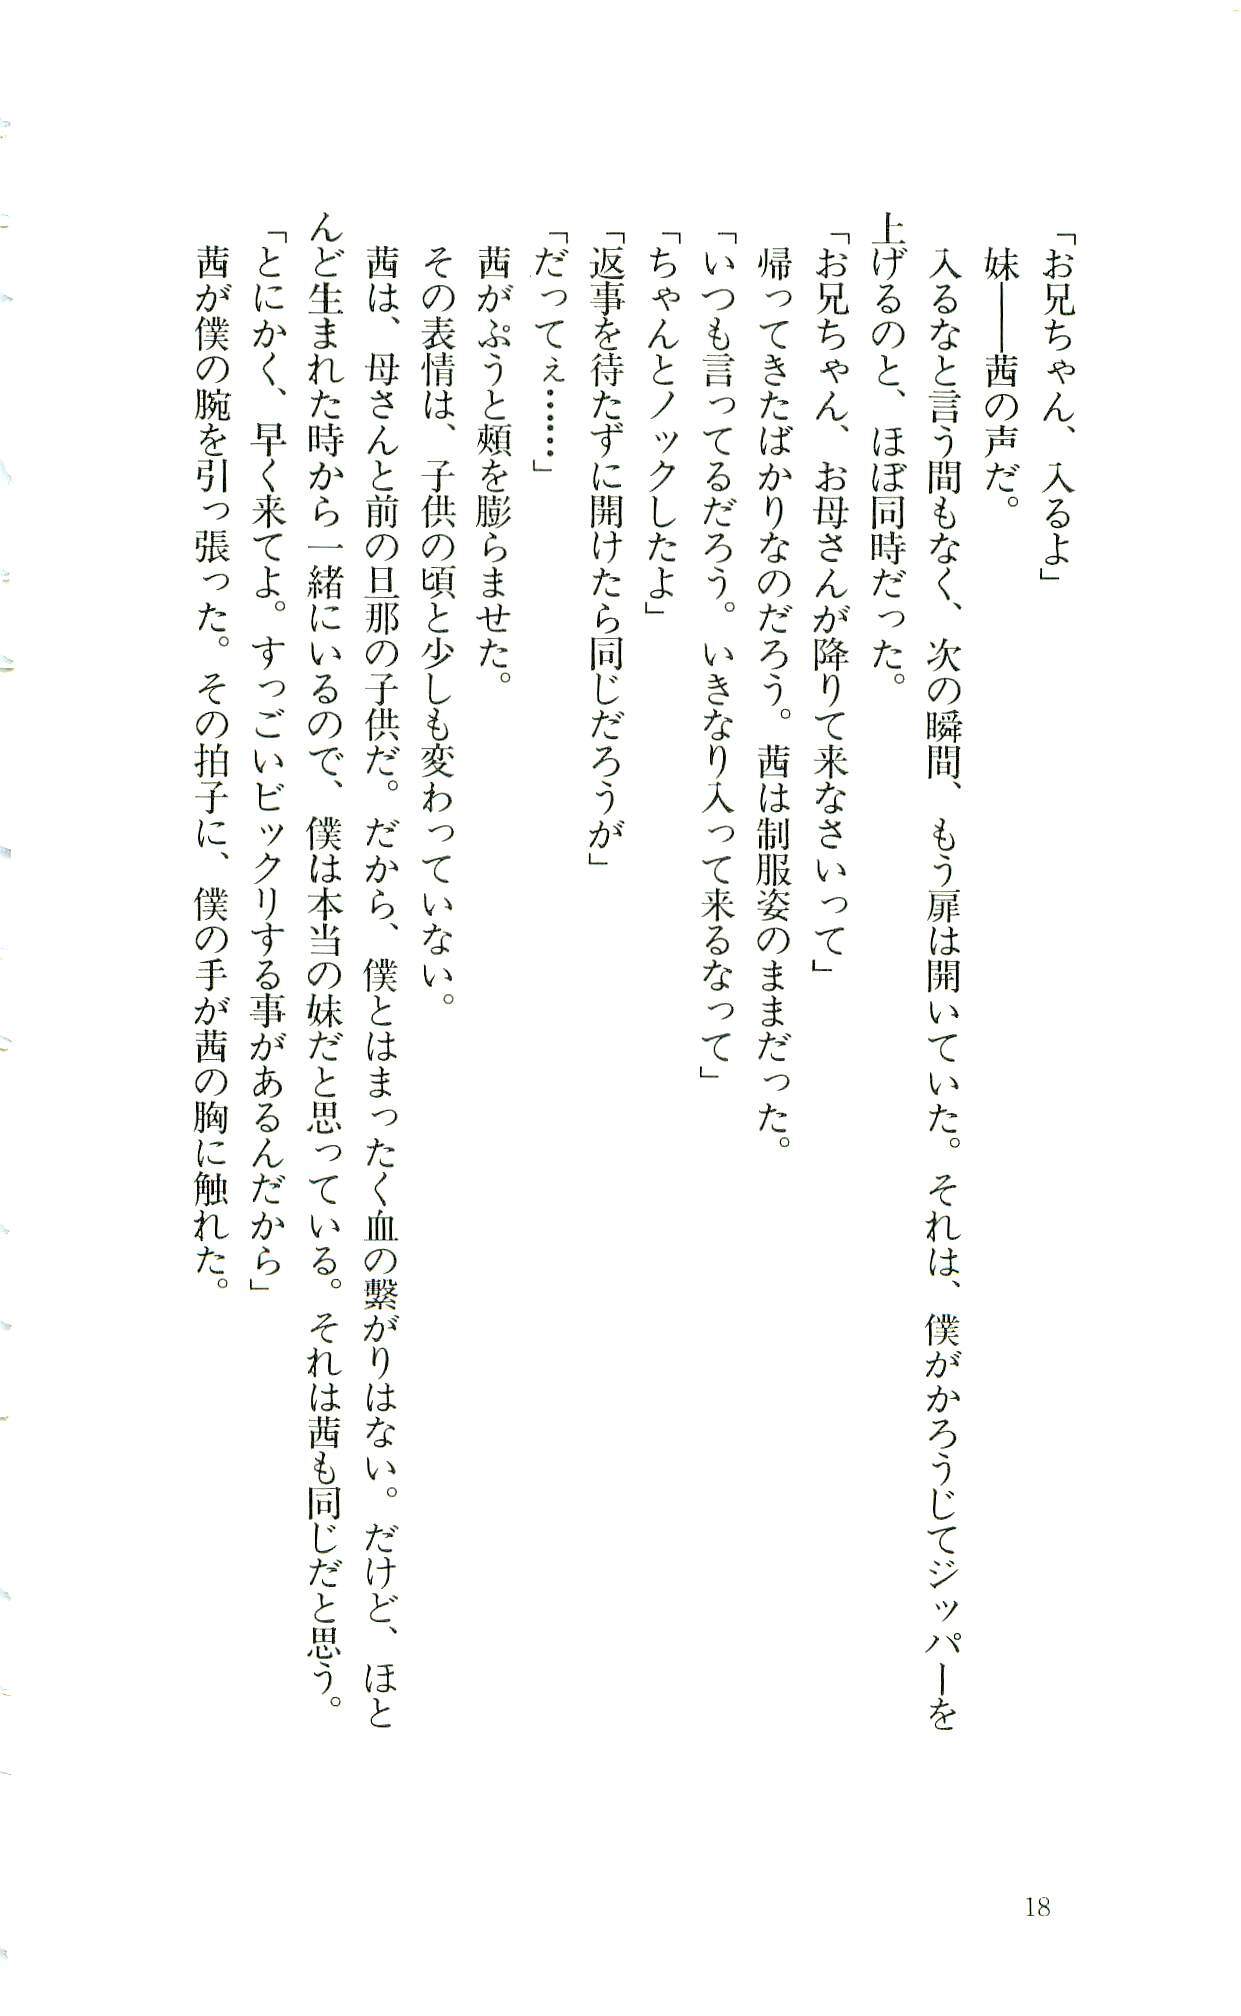 「お兄ちゃん、入るよ」
妹――茜の声だ。
入るなと言う間もなく、次の瞬間、もう扉は開いていた。それは、僕がかろうじてジッパーを
上げるのと、ほぼ同時だった。
「お兄ちゃん、お母さんが降りて来なさいって」
帰ってきたばかりなのだろう。茜は制服姿のままだった。
「いつも言ってるだろう。いきなり入って来るなって」
「ちゃんとノックしたよ」
「返事を待たずに開けたら同じだろうが」
「だってぇ……」
茜がぷうと頰を膨らませた。
その表情は、子供の頃と少しも変わっていない。
茜は、母さんと前の旦那の子供だ。だから、僕とはまったく血の繫がりはない。だけど、ほと
んど生まれた時から一緒にいるので、僕は本当の妹だと思っている。それは茜も同じだと思う。
「とにかく、早く来てよ。すっごいビックリする事があるんだから」
茜が僕の腕を引っ張った。その拍子に、僕の手が茜の胸に触れた。
18